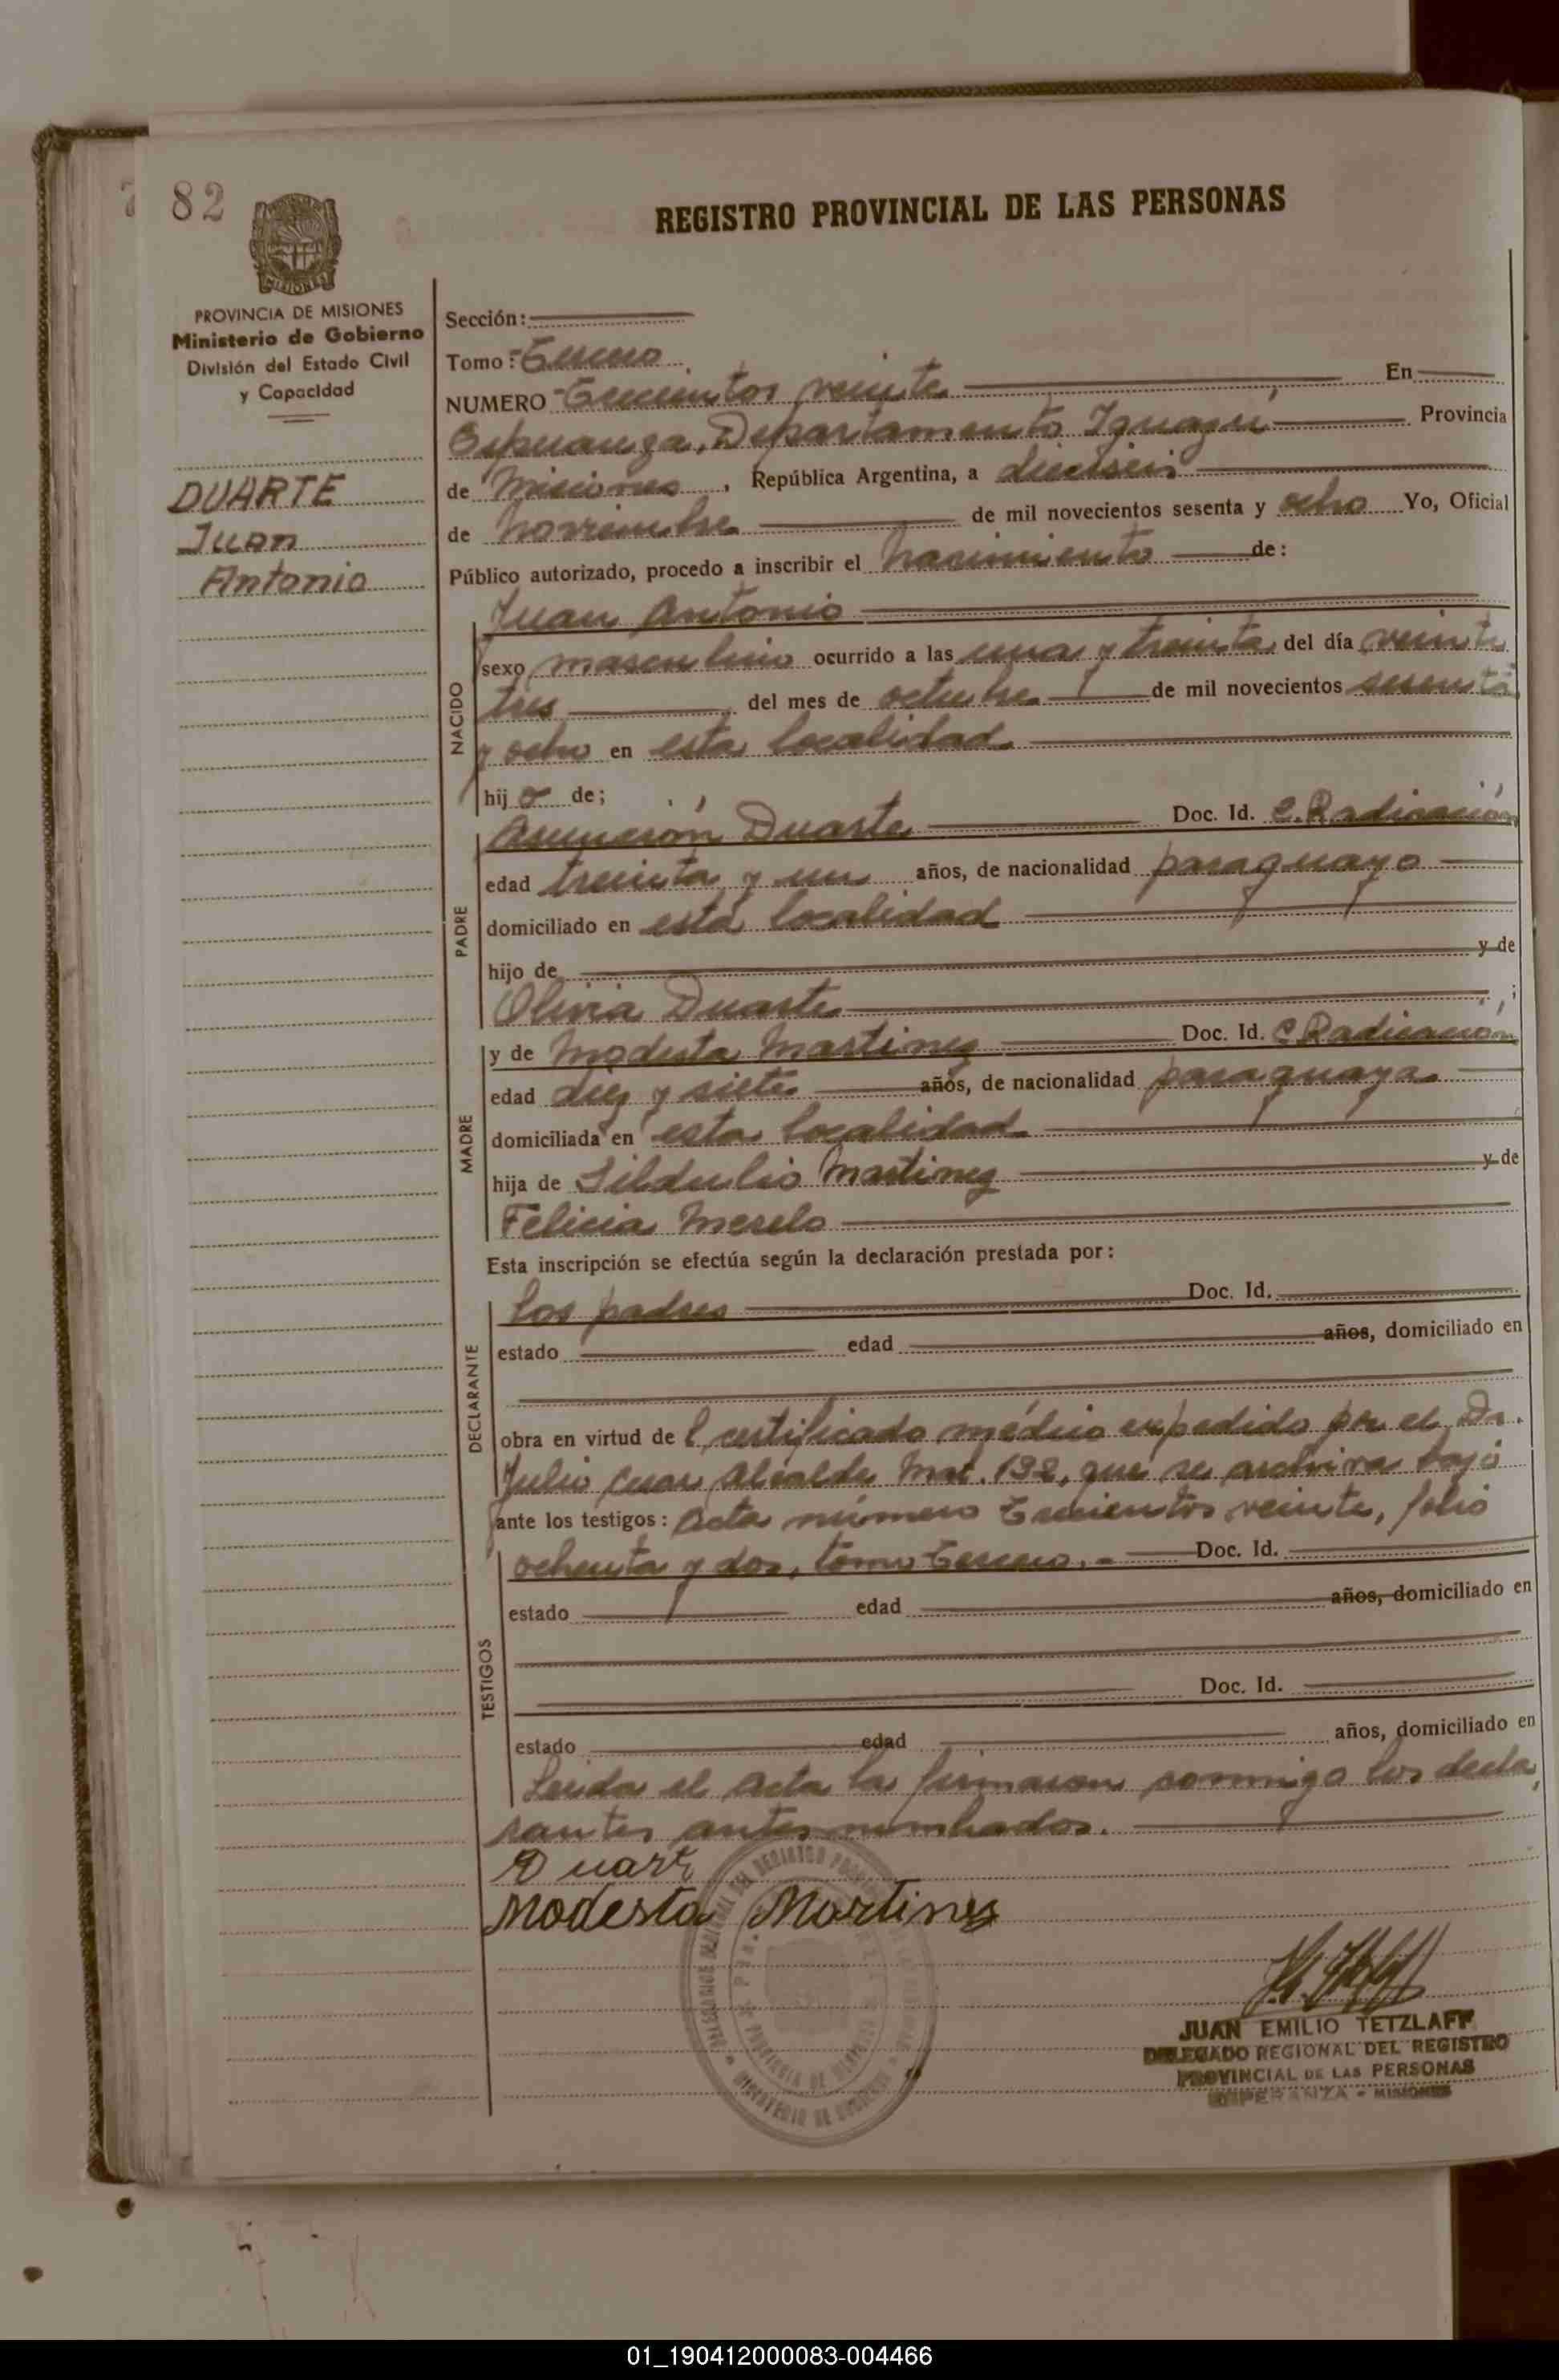 82
REGISTRO PROVINCIAL DE LAS PERSONAS
MISIONES
PROVINCIA DE MISIONES
Ministerio de Gobierno
División del Estado Civil
y Capacidad
DUARTE
Juan
Antonio
Sección:
Tomo: Tercero
NUMERO Trecientos veinte En
Esperanza, Departamento Iguazú Provincia
de Misiones, República Argentina, a dieciseis
de noviembre de mil novecientos sesenta y ocho Yo, Oficial
Público autorizado, procedo a inscribir el nacimiento de:
NACIDO
Juan Antonio
sexo masculino ocurrido a las una y treinta del día veinti
tres del mes de octubre de mil novecientos sesenta
y ocho en esta localidad.
hij o de;
PADRE
Asunción Duarte Doc. Id. C. Radicación
edad treinta y un años, de nacionalidad paraguayo
domiciliado en esta localidad
hijo de y de
Olivia Duarte ;
MADRE
y de Modesta Martinez Doc. Id. C Radicación
edad diez y siete años, de nacionalidad paraguaya
domiciliada en esta localidad
hija de Martinez y de
Felicia
Esta inscripción se efectúa según la declaración prestada por:
DECLARANTE
los padres Doc. Id.
estado edad años, domiciliado en
obra en virtud de l certificado médico expedido por el Dr.
Julio Cesar Alcalde Mat. 132, que se archiva bajo
ante los testigos: Acta número Trecientos veinte, folio
TESTIGOS
ochenta y dos, tomo Tercero.- Doc. Id.
estado edad años, domiciliado en
Doc. Id.
estado edad años, domiciliado en
Leida el Acta la firmaron conmigo los decla
rantes antes nombrados.
Duarte
Modesta Martines
JUAN EMILIO TETZLAFF
DELEGADO REGIONAL DEL REGISTRO
PROVINCIAL DE LAS PERSONAS
ESPERANZA - MISIONES
01_190412000083-004466